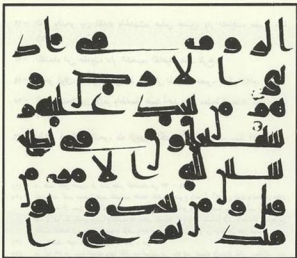 الروم فى اد
نى الارض و
هم من بعد غلبهم
سيغلبون فى بضع
سنين لله الامر من
قبل ومن بعد ويو
مئذ يفرح ا